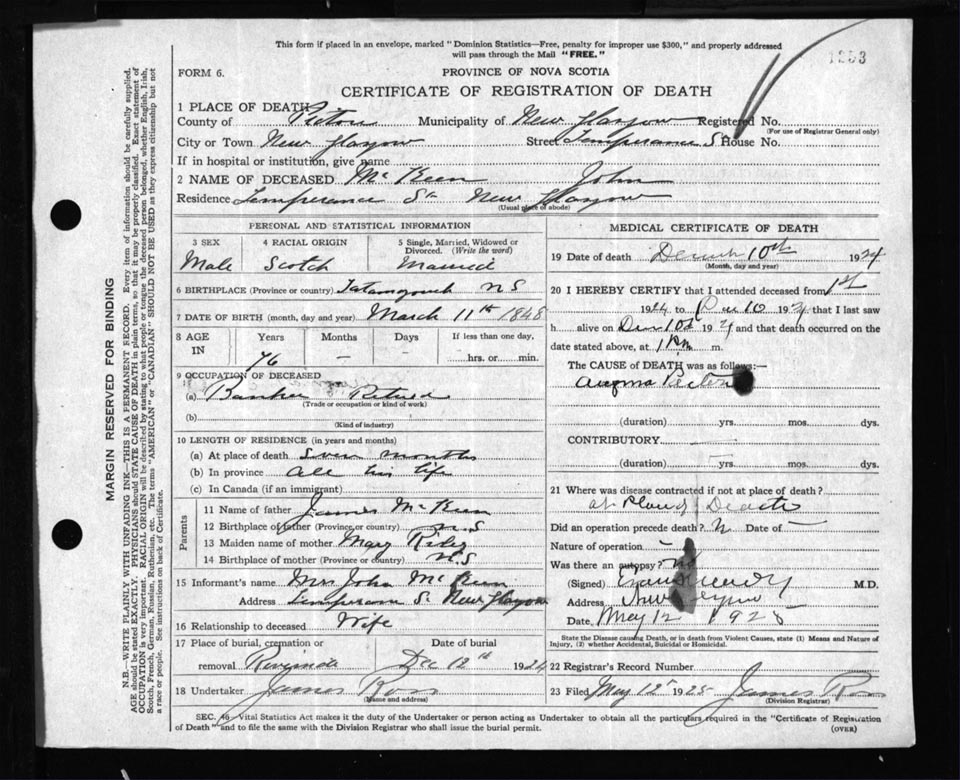 This form if placed in an envelope, marked "Dominion Statistics—Free, penalty for improper use $300," and properly addressed
will pass through the Mail "FREE."
1253
FORM 6.
PROVINCE OF NOVA SCOTIA
CERTIFICATE OF REGISTRATION OF DEATH
MARGIN RESERVED FOR BINDING
N.B.—WRITE PLAINLY WITH UNFADING INK—THIS IS A PERMANENT RECORD. Every item of information should be carefully supplied.
AGE should be stated EXACTLY. PHYSICIANS should STATE CAUSE OF DEATH in plain terms, so that it may be properly classified. Exact statement of
OCCUPATION is very important. RACIAL ORIGIN will be described by stating to what people or tongue the deceased person belonged, whether English, Irish,
Scotch, French, German, Russian, Ruthenian, etc. The terms "AMERICAN" or "CANADIAN" SHOULD NOT BE USED as they express citizenship but not
a race or people. See instructions on back of Certificate.
1 PLACE OF DEATH
County of Pictou Municipality of New Glasgow Registered No.
(For use of Registrar General only)
City or Town New Glasgow Street Temperance St House No.
If in hospital or institution, give name
2 NAME OF DECEASED McKeen John
Residence Temperance St New Glasgow
(Usual place of abode)
PERSONAL AND STATISTICAL INFORMATION
3 SEX 4 RACIAL ORIGIN 5 Single, Married, Widowed or
Divorced. (Write the word)
Male Scotch Married
6 BIRTHPLACE (Province or country) N S
7 DATE OF BIRTH (month, day and year) March 11th 1848
8 AGE IN Years Months Days If less than one day,
76 – – hrs. or min.
9 OCCUPATION OF DECEASED
(a) Banker Retired
(Trade or occupation or kind of work)
(b)
(Kind of industry)
10 LENGTH OF RESIDENCE (in years and months)
(a) At place of death Seven months
(b) In province all his life
(c) In Canada (if an immigrant)
Parents
11 Name of father James McKeen
12 Birthplace of father (Province or country) N.S
13 Maiden name of mother Mary
14 Birthplace of mother (Province or country) N.S
15 Informant's name Mrs John McKeen
Address Temperance St New Glasgow
16 Relationship to deceased Wife
17 Place of burial, cremation or Date of burial
removal Riverside Dec 12th 1924
18 Undertaker James Ross
(Name and address)
MEDICAL CERTIFICATE OF DEATH
19 Date of death 10th 1924
(Month, day and year)
20 I HEREBY CERTIFY that I attended deceased from 1st
1924 to Dec 10 1924 that I last saw
h alive on Dec 10 1924 and that death occurred on
the date stated above, at 1 Pm m.
The CAUSE of DEATH was as follows:—
Angina Pectoris
(duration) yrs. mos. dys.
CONTRIBUTORY
(duration) yrs. mos. dys.
21 Where was disease contracted if not at place of death?
at Place of Death
Did an operation precede death? N Date of –
Nature of operation –
Was there an autopsy?
(Signed) M.D.
Address New Glasgow
Date, May 12 1925
State the Disease causing Death, or in death from Violent Causes, state (1) Means and Nature of
Injury, (2) whether Accidental, Suicidal or Homicidal.
22 Registrar's Record Number
23 Filed May 12th 1925 James Ross
(Division Registrar)
SEC. 46 Vital Statistics Act makes it the duty of the Undertaker or person acting as Undertaker to obtain all the particulars required in the "Certificate of Registration
of Death" and to file the same with the Division Registrar who shall issue the burial permit.
(OVER)